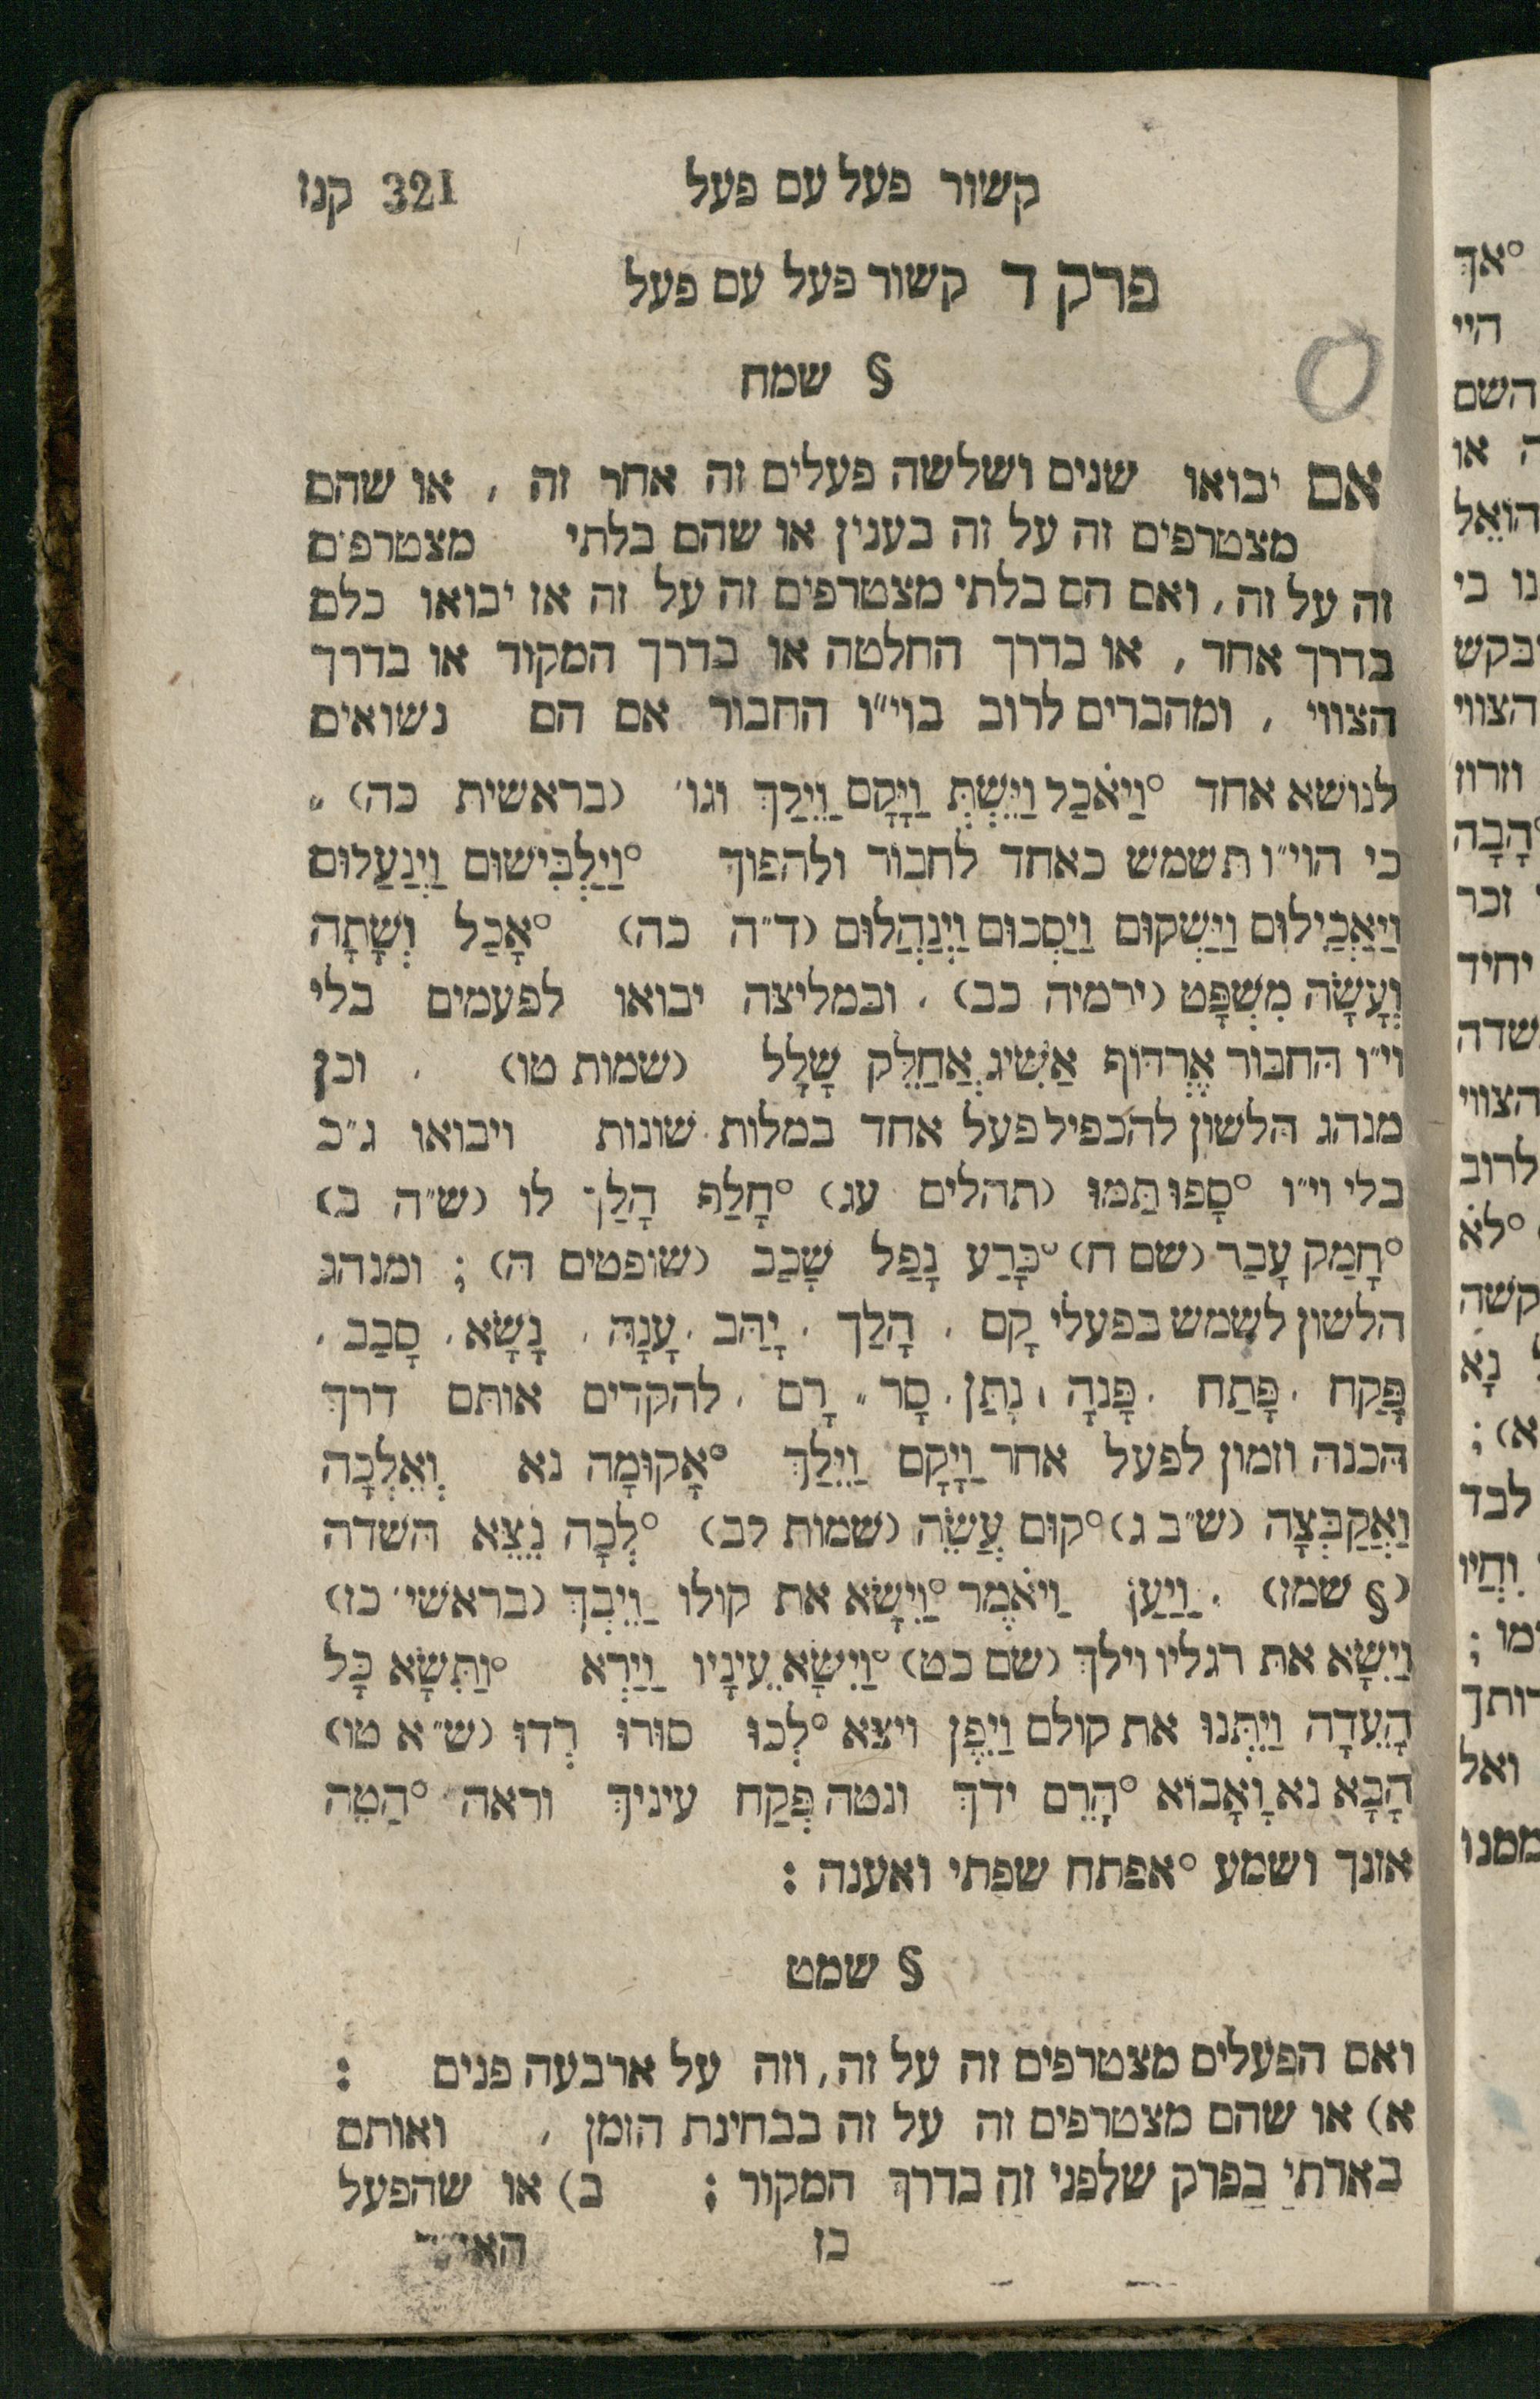 קשור פעל עם פעל 321 קנו
פרק ד קשור פעל עם פעל
§ שמח
אם יבואו שנים ושלשה פעלים זה אחר זה , או שהם
מצטרפים זה על זה בענין או שהם בלתי מצטרפים
זה על זה , ואם הם בלתי מצטרפים זה על זה אז יבואו כלם
בדרך אחר , או בדרך החלטה או בדרך המקור או בדרך
הצווי , ומהברים לרוב בוי״ו החבור אם הם נשואים
לנושא אחד °וַיֹּאכַל וַיֵּשְׁתְּ וַיָּקָם וַיֵּלַךְ וגו׳ (בראשית כה) ,
כי הוי״ו תשמש כאחד לחבור ולהפוך °וַיַלְבִּישׁוּם וַיַנְעַלוּם
וַיַאֲכִילוּם וַיַּשְׁקוּם וַיַסִכוּם וַיְנַהֲלוּם (ד״ה כה) °אָכַל וְשָׁתָה
וְעָשָׂה מִשְׁפָּט (ירמיה כב) , ובמליצה יבואו לפעמים בלי
וי״ו החבור אֶרְדּוֹף אַשִׂיג אֲחַלֵּק שָׁלָל (שמות טו) , וכן
מנהג הלשון להכפיל פעל אחד במלות שונות ויבואו ג״כ
בלי וי״ו °סָפוּ תַּמּוּ (תהלים עג) °חָלַף הָלַךְ לו (ש״ה ב)
°חָמַק עָבַר (שם ח) °כָּרַע נָפַל שָׁכַב (שופטים ה) ; ומנהג
הלשון לשמש בפעלי קָם , הָלַךְ , יָהַב , עָנָה , נָשָׂא , סָבַב ,
פָּקַח , פָּתַח , פָּנָה , נָתַן , סָר , רָם , להקדים אותם דרך
הכנה וזמון לפעל אחר וַיָקָם וַיֵּלַךְ °אָקוּמָה נא וְאֵלְכָה
וְאֶקְבְּצָה (ש״ב ג) °קוּם עֲשֵׂה (שמות לב) °לְכָה נֵצֵא השדה
(§ שמז) , וַיַעַן וַיֹאמֶר °וַיִּשָׂא את קולו וַיֵבְךְ (בראשי׳ כז)
וַיִשָׂא את רגליו וילך (שם כט) °וַיִשָׂא עֵינָיו וַיַרְא °וַתִּשָׂא כָּל
הָעֵדָה וַיִּתְּנוּ את קולם וַיִפֶן ויצא °לְכוּ סוּרוּ רְדוּ (ש״א טו)
הָבָא נא וְאָבוֹא °הָרֵם ידך ונטה פְּקַח עיניך וראה °הַטֵה
אזנך ושמע °אפתח שפתי ואענה :
§ שמט
ואם הפעלים מצטרפים זה על זה , וזה על ארבעה פנים :
א) או שהם מצטרפים זה על זה בבחינת הזמן , ואותם
בארתי בפרק שלפני זה בדרך המקור : ב) או שהפעל
כז
°אך
היי
השם
ה או
הוֹאֵל
נו כי
יבקש
הצווי
וזרוז
°הָבָה
זכר
יחיד
השדה
הצווי
לרוב
°לֹא
קשה
נָא
א) ;
לבד
וִחְיוּ
מו ;
רותך
ואל
ממנו